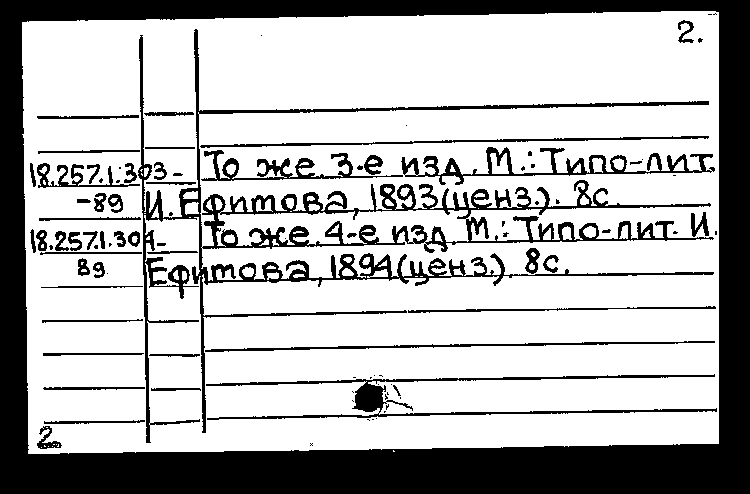 2.
18.257.1.303- То же. 3-е изд. М.: Типо-лит.
-89 И. Ефитова, 1893(ценз.). 8с.
18.257.1.304- То же. 4-е изд. М.: Типо-лит. И.
89 Ефитова, 1894(ценз.). 8с.
2